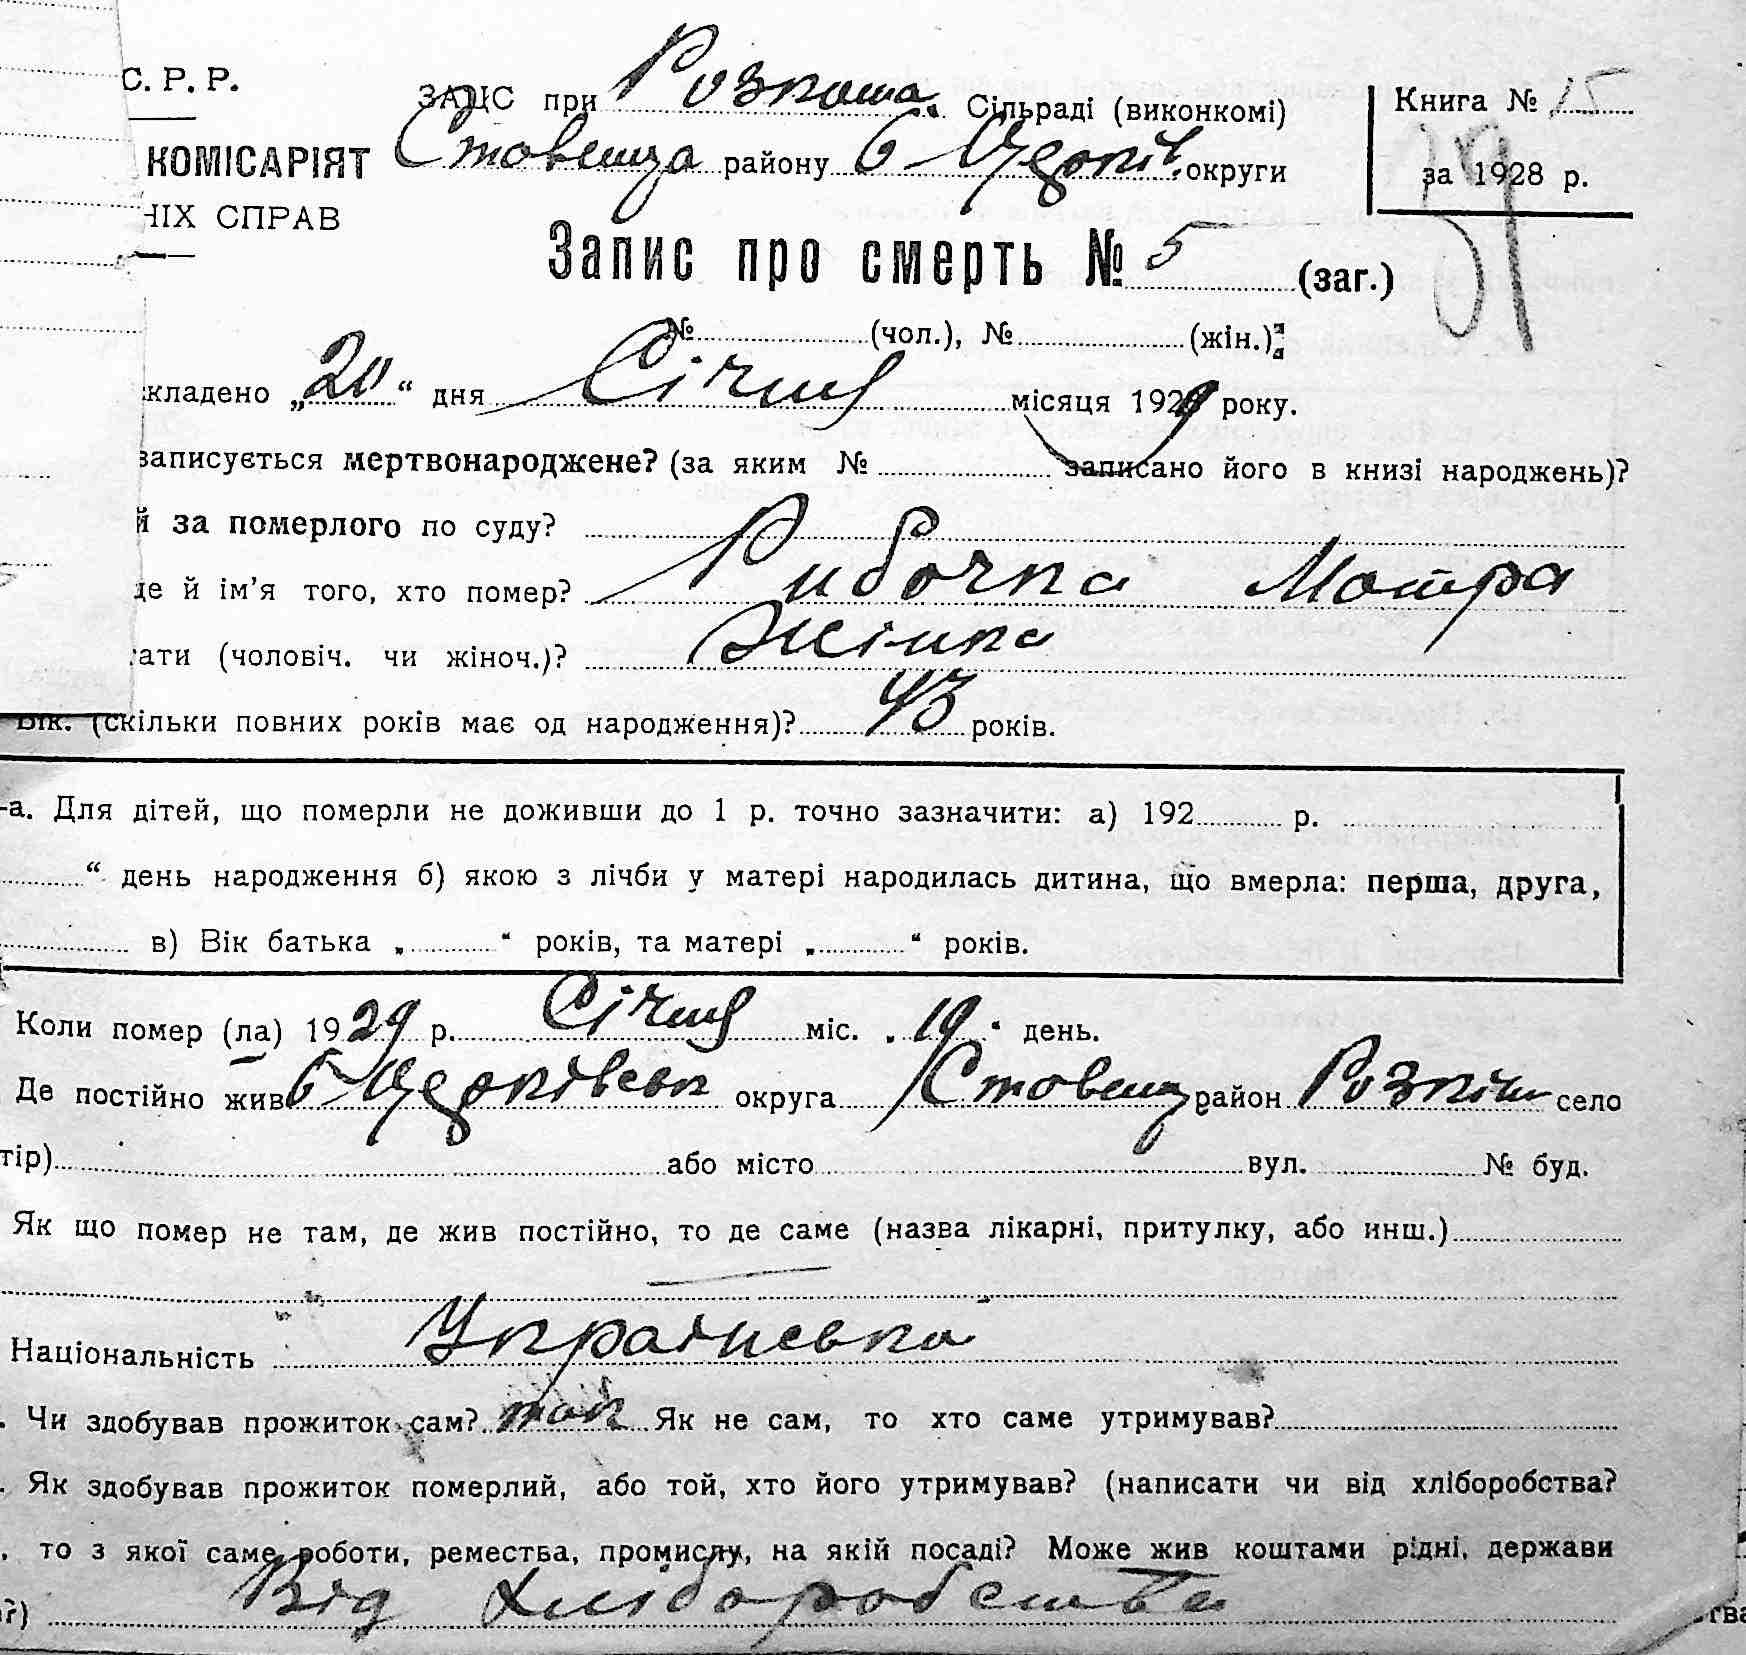 С. Р. Р.
ЗАЦС при Розкоша. Сільраді (виконкомі)
Книга № 15
КОМІСАРІЯТ
Ставища району б-Церків. округи
за 1928 р.
НІХ СПРАВ
Запис про смерть № 5 (заг.)
№ (чол.), № (жін.)
кладено „20“ дня Січня місяця 1929 року.
записується мертвонароджене? (за яким № записано його в книзі народжень)?
й за померлого по суду?
це й ім’я того, хто помер? Рибачка Мотря
тати (чоловіч. чи жіноч.)? Жінка
Вік. (скільки повних років має од народження)? 43 років.
-а. Для дітей, що померли не доживши до 1 р. точно зазначити: а) 192 р.
“ день народження б) якою з лічби у матері народилась дитина, що вмерла: перша, друга,
в) Вік батька „ “ років, та матері „ “ років.
Коли помер (ла) 1929 р. Січня міс. „19“ день.
Де постійно жив б-Церківськ округа Ставищ район Розкіш село
тір) або місто вул. № буд.
Як що помер не там, де жив постійно, то де саме (назва лікарні, притулку, або инш.)
Національність Українська
. Чи здобував прожиток сам? так Як не сам, то хто саме утримував?
. Як здобував прожиток померлий, або той, хто його утримував? (написати чи від хліборобства?
, то з якої саме роботи, ремества, промислу, на якій посаді? Може жив коштами рідні, держави
?) Від Хліборобства